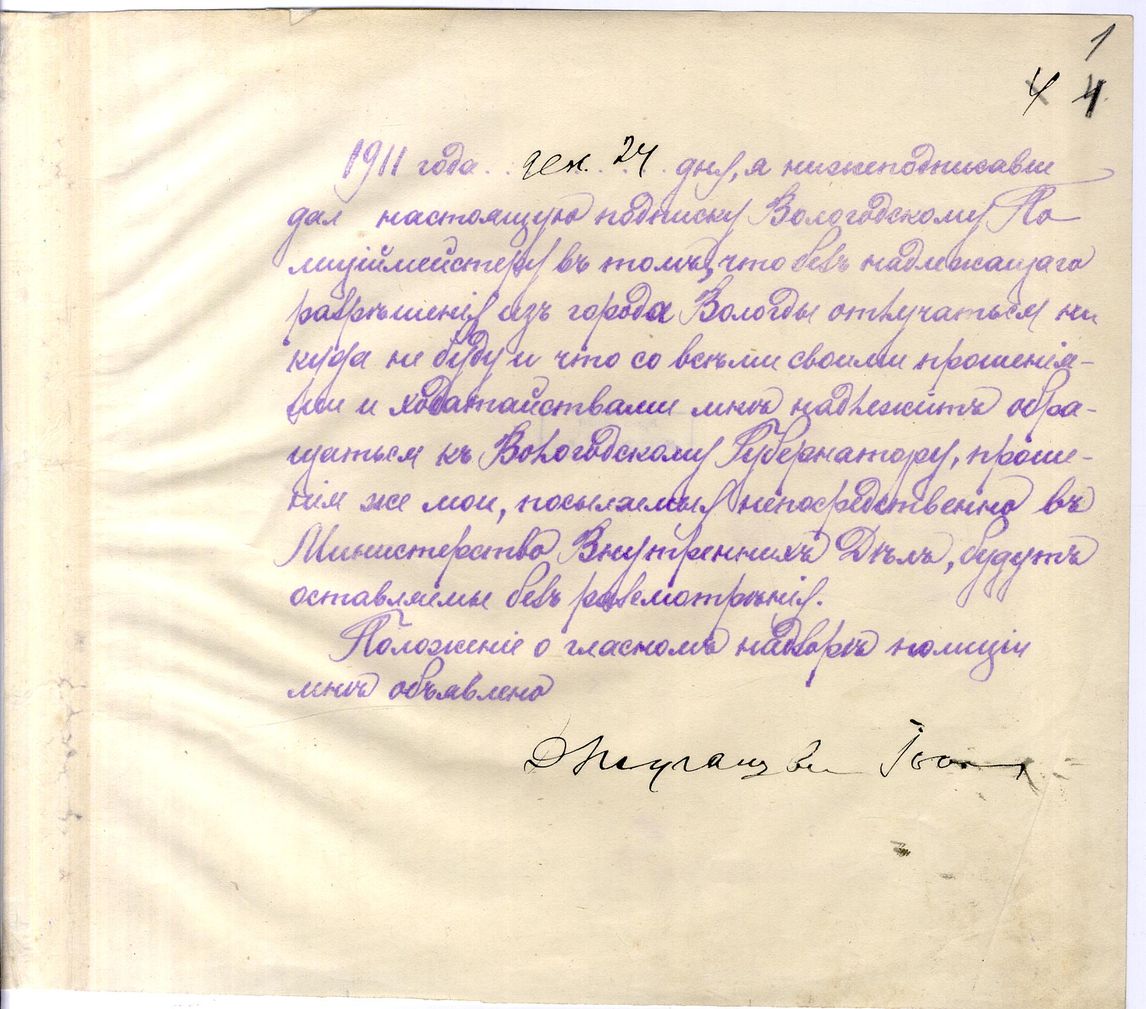 1
4 4
1911 года . . дек. 24 . дня, я нижеподписавши
дал настоящую подписку Вологодскому По
лиціймейстеру въ томъ, что безъ надлежащаго
разрѣшенія изъ города Вологды отлучаться ни
куда не буду и что со всѣми своими прошенія-
ми и ходатайствами мнѣ надлежитъ обра-
щаться къ Вологодскому Губернатору, проше-
нія же мои, посылаемыя непосредственно въ
Министерство Внутреннихъ Дѣлъ, будутъ
оставляемы безъ разсмотрѣнія.
Положеніе о гласномъ надзорѣ полиціи
мнѣ объявлено
Джугашвили